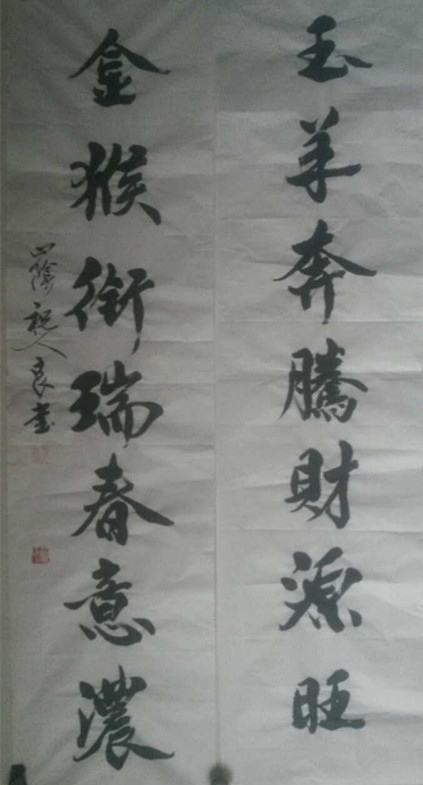 玉羊奔騰財源旺
金猴銜瑞春意濃
山陰祝人良書